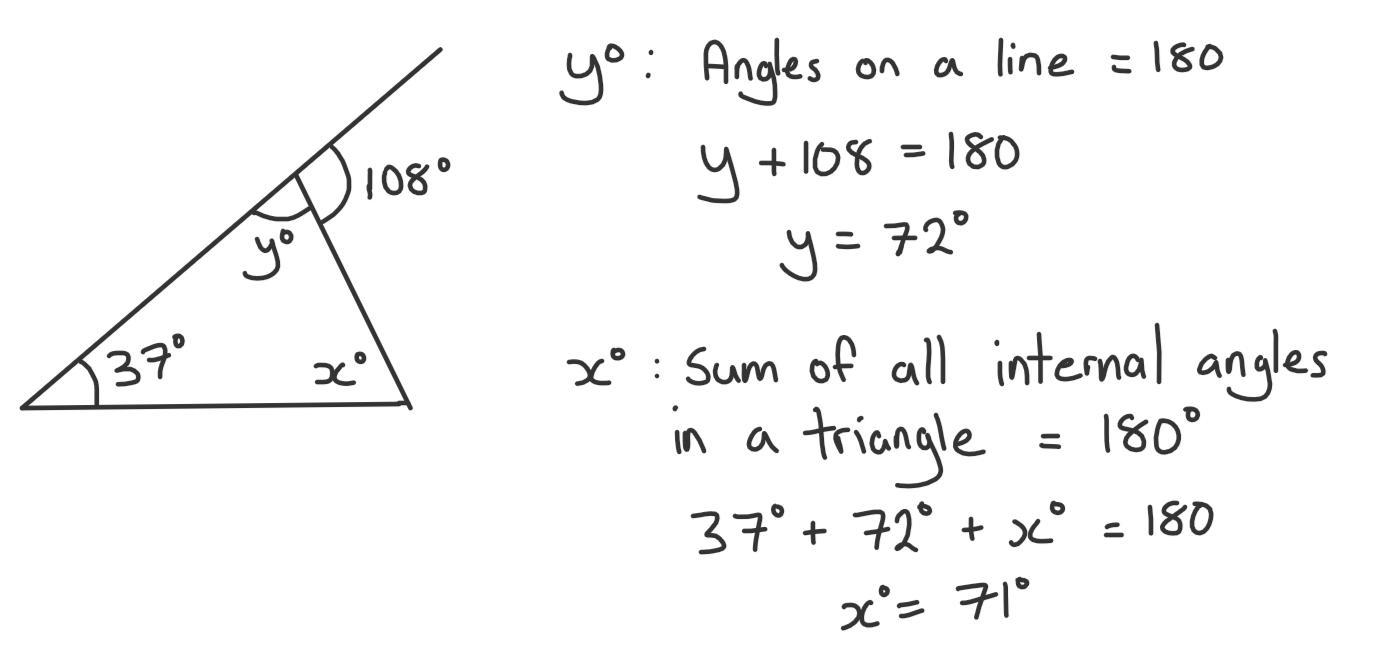 108°
y°
37°
x°
y° : Angles on a line = 180
y + 108 = 180
y = 72°
x° : Sum of all internal angles
in a triangle = 180°
37° + 72° + x° = 180
x° = 71°